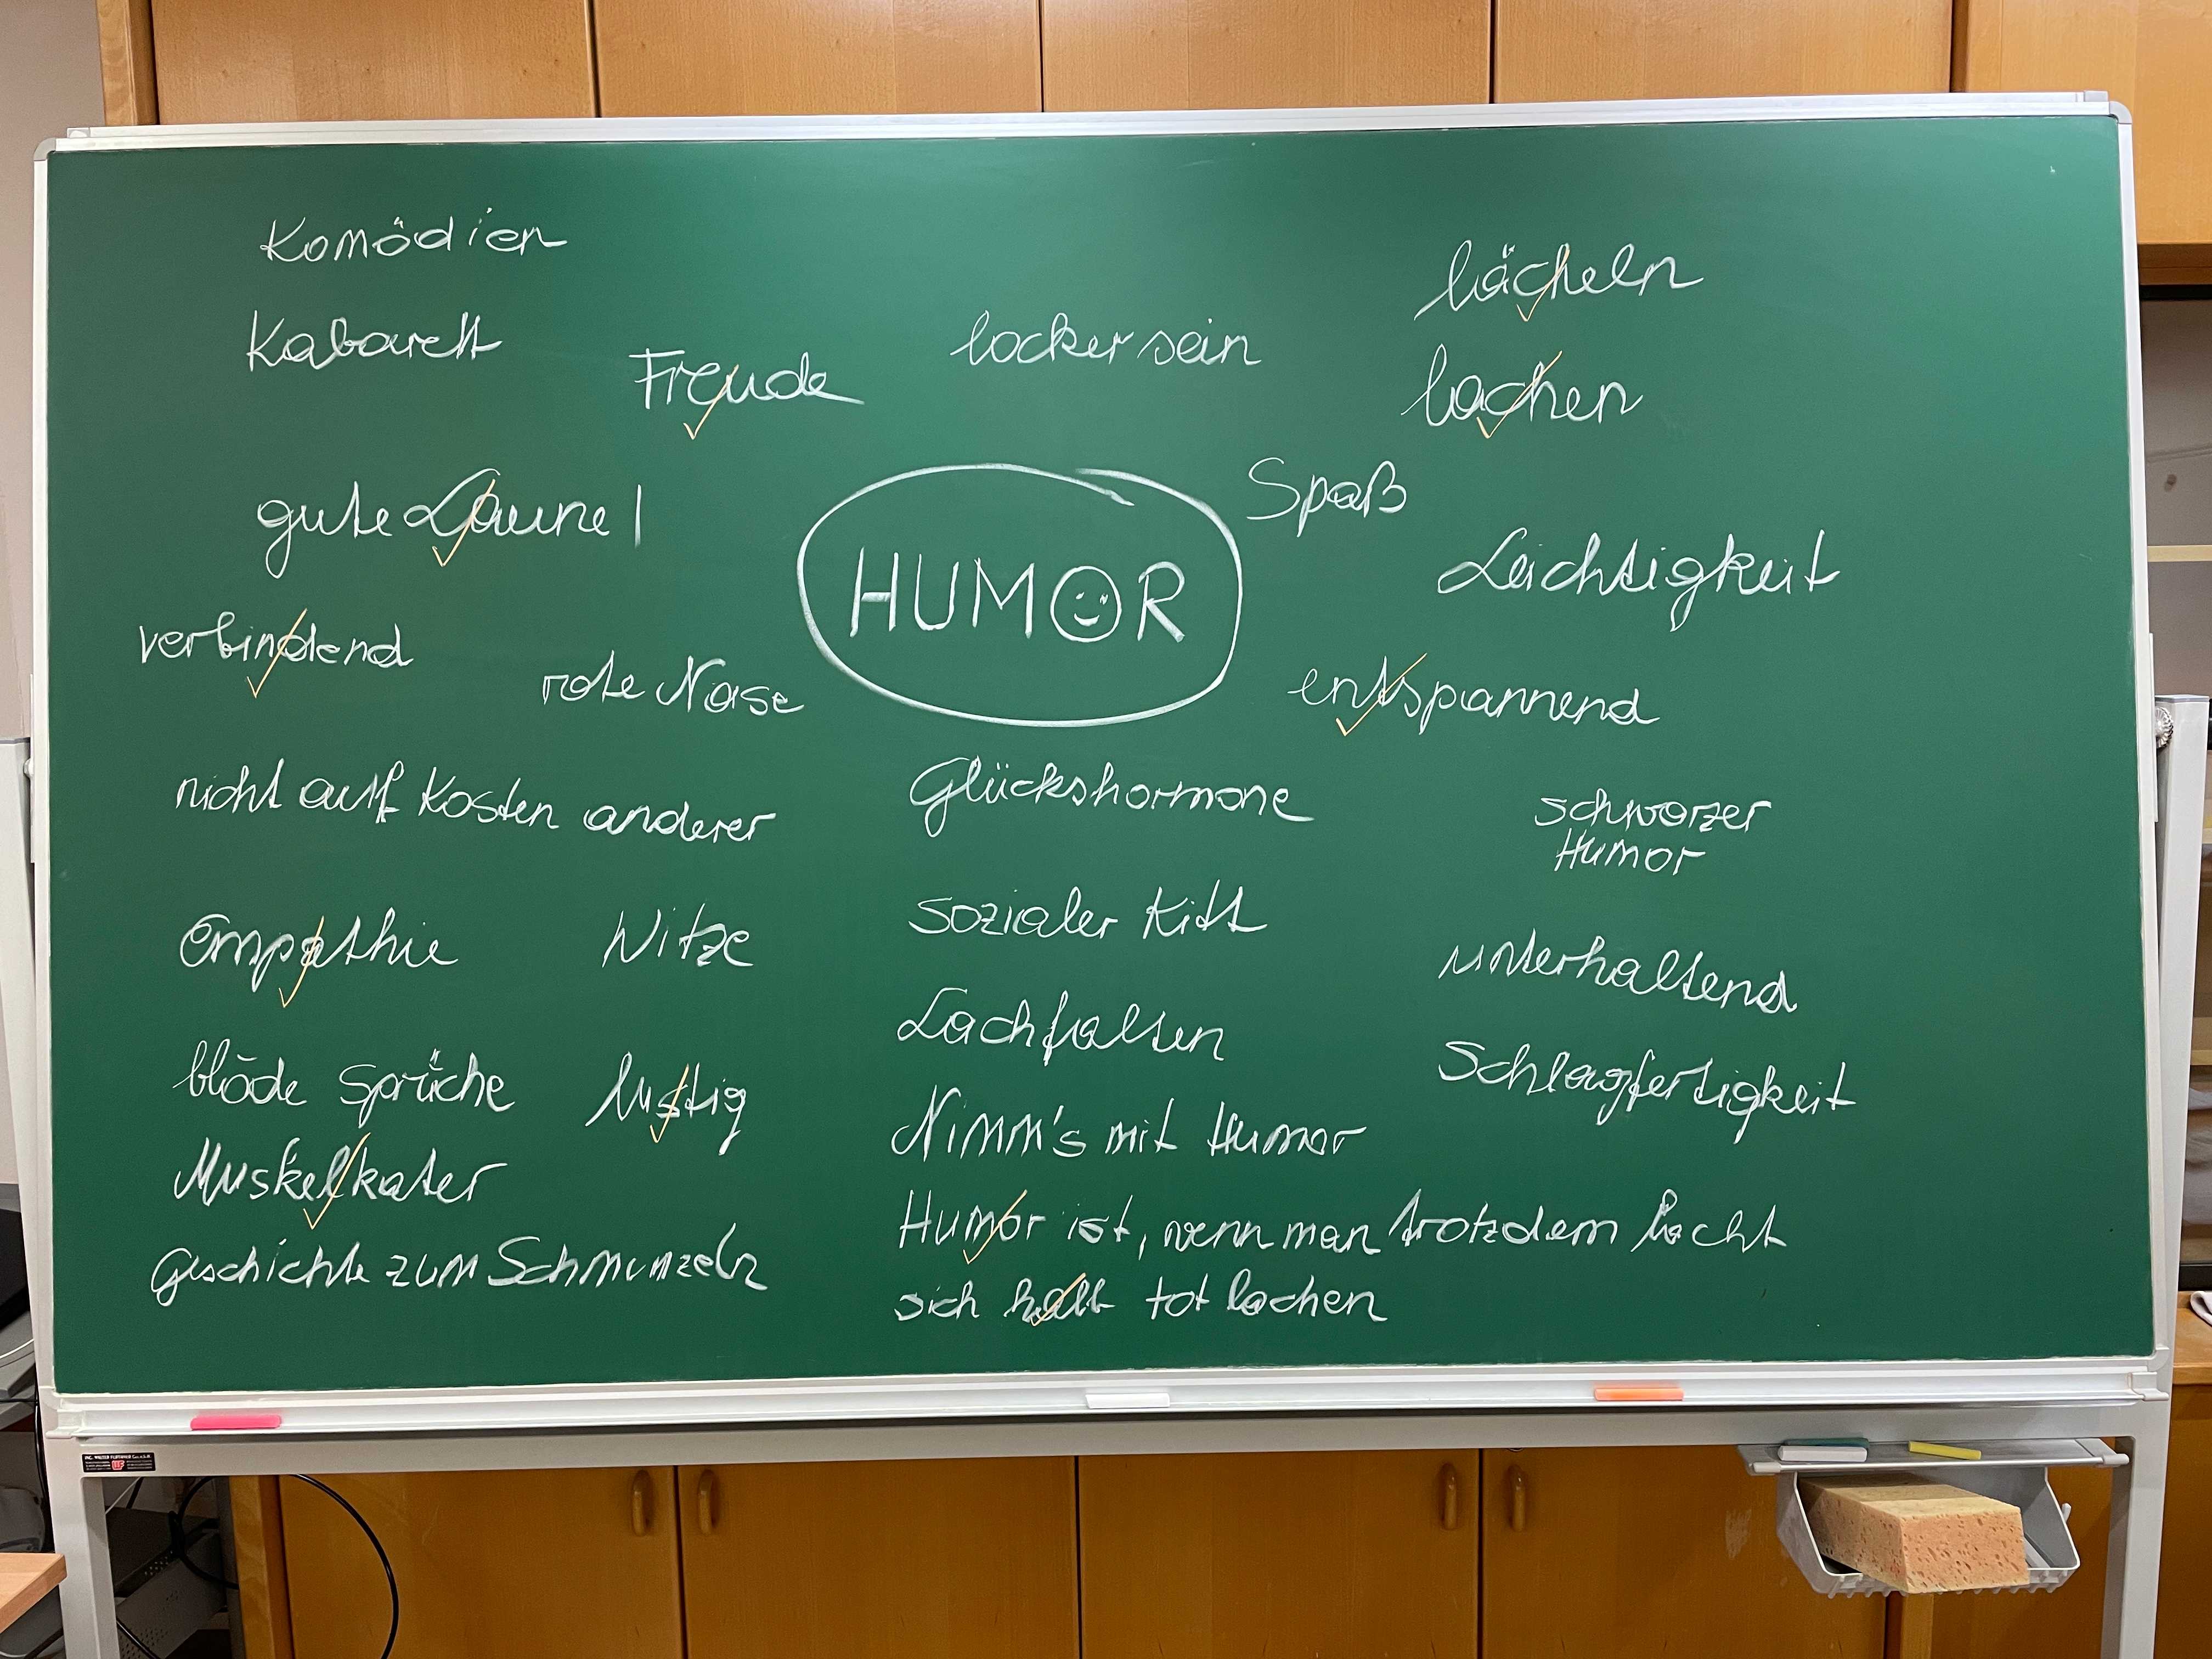 Komödien
lächeln
Kabarett
locker sein
Freude
lachen
gute Laune |
Spaß
HUMOR
Leichtigkeit
verbindend
rote Nase
entspannend
nicht auf Kosten anderer
Glückshormone
schwarzer
Humor
Empathie
Witze
sozialer Kitt
unterhaltend
Lachfalten
blöde Sprüche
lustig
Schlagfertigkeit
Nimm's mit Humor
Muskelkater
Humor ist, wenn man trotzdem lacht
Geschichte zum Schmunzeln
sich halb tot lachen